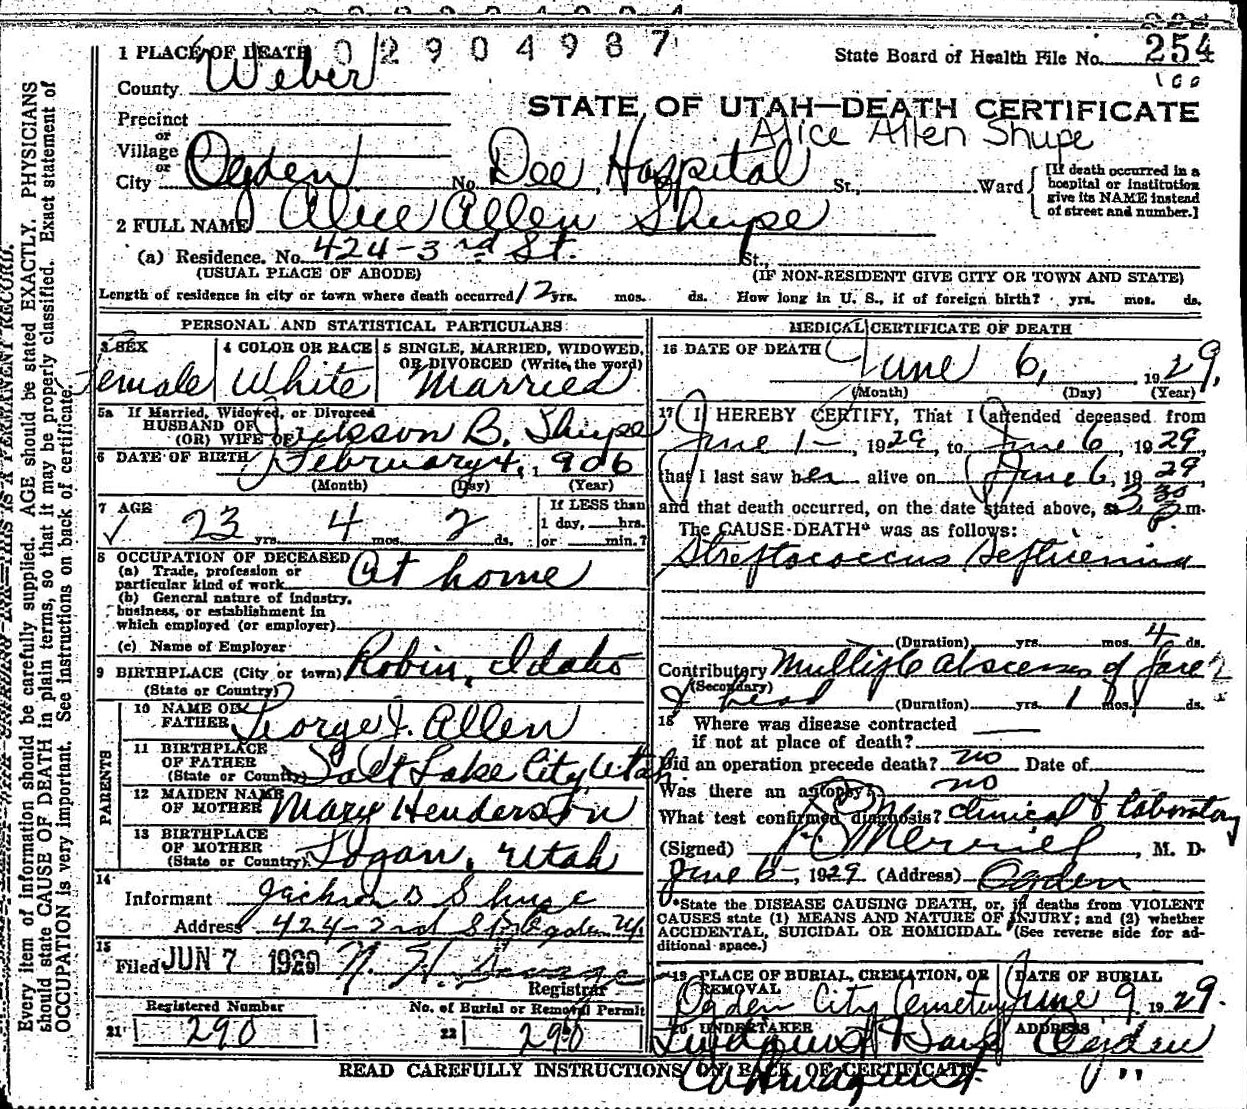 02904987
1 PLACE OF DEATH
State Board of Health File No. 254
County Weber
100
STATE OF UTAH—DEATH CERTIFICATE
Precinct
Alice Allen Shupe
or
Village
or
City Ogden No. Dee Hospital St., Ward
[If death occurred in a hospital or institution give its NAME instead of street and number.]
2 FULL NAME Alice Allen Shupe
(a) Residence. No. 424-3rd St. St.,
(USUAL PLACE OF ABODE) (IF NON-RESIDENT GIVE CITY OR TOWN AND STATE)
Length of residence in city or town where death occurred 12 yrs. mos. ds. How long in U. S., if of foreign birth? yrs. mos. ds.
PERSONAL AND STATISTICAL PARTICULARS
3 SEX Female
4 COLOR OR RACE White
5 SINGLE, MARRIED, WIDOWED,
OR DIVORCED (Write the word)
Married
5a If Married, Widowed, or Divorced
HUSBAND OF
(OR) WIFE OF B. Shupe
6 DATE OF BIRTH February 4, 1906
(Month) (Day) (Year)
7 AGE 23 yrs. 4 mos. 2 ds.
If LESS than
1 day, hrs.
or min.?
8 OCCUPATION OF DECEASED
(a) Trade, profession or
particular kind of work At home
(b) General nature of industry,
business, or establishment in
which employed (or employer)
(c) Name of Employer
9 BIRTHPLACE (City or town) Robin, Idaho
(State or Country)
PARENTS
10 NAME OF
FATHER George J. Allen
11 BIRTHPLACE
OF FATHER
(State or Country) Salt Lake City Utah
12 MAIDEN NAME
OF MOTHER Mary Henderson
13 BIRTHPLACE
OF MOTHER
(State or Country) Logan, Utah
14
Informant Jackson B Shupe
Address 424-2nd St Ogden Ut.
15
Filed JUN 7 1929
Registrar
Registered Number
21 290
No. of Burial or Removal Permit
22 290
MEDICAL CERTIFICATE OF DEATH
16 DATE OF DEATH June 6, 1929,
(Month) (Day) (Year)
17 I HEREBY CERTIFY, That I attended deceased from
June 1-, 1929, to June 6, 1929,
that I last saw her alive on June 6, 1929,
and that death occurred, on the date stated above, at 3 30 P m.
The CAUSE-DEATH* was as follows:
Streptococcus Septicemia
(Duration) yrs. mos. 4 ds.
Contributory Multiple abscesses of face
(Secondary)
& head (Duration) yrs. 1 mos. ds.
18 Where was disease contracted
if not at place of death?
Did an operation precede death? no Date of
Was there an autopsy? no
What test confirmed diagnosis? Clinical & laboratory
(Signed) Merrill, M. D.
June 6-, 1929 (Address) Ogden
*State the DISEASE CAUSING DEATH, or, if deaths from VIOLENT
CAUSES state (1) MEANS AND NATURE OF INJURY; and (2) whether
ACCIDENTAL, SUICIDAL OR HOMICIDAL. (See reverse side for ad-
ditional space.)
19 PLACE OF BURIAL, CREMATION, OR
REMOVAL
Ogden City Cemetery
DATE OF BURIAL
June 9 1929.
20 UNDERTAKER
ADDRESS
Ogden
READ CAREFULLY INSTRUCTIONS ON BACK OF CERTIFICATE
Every item of information should be carefully supplied. AGE should be stated EXACTLY. PHYSICIANS
should state CAUSE OF DEATH in plain terms, so that it may be properly classified. Exact statement of
OCCUPATION is very important. See instructions on back of certificate.